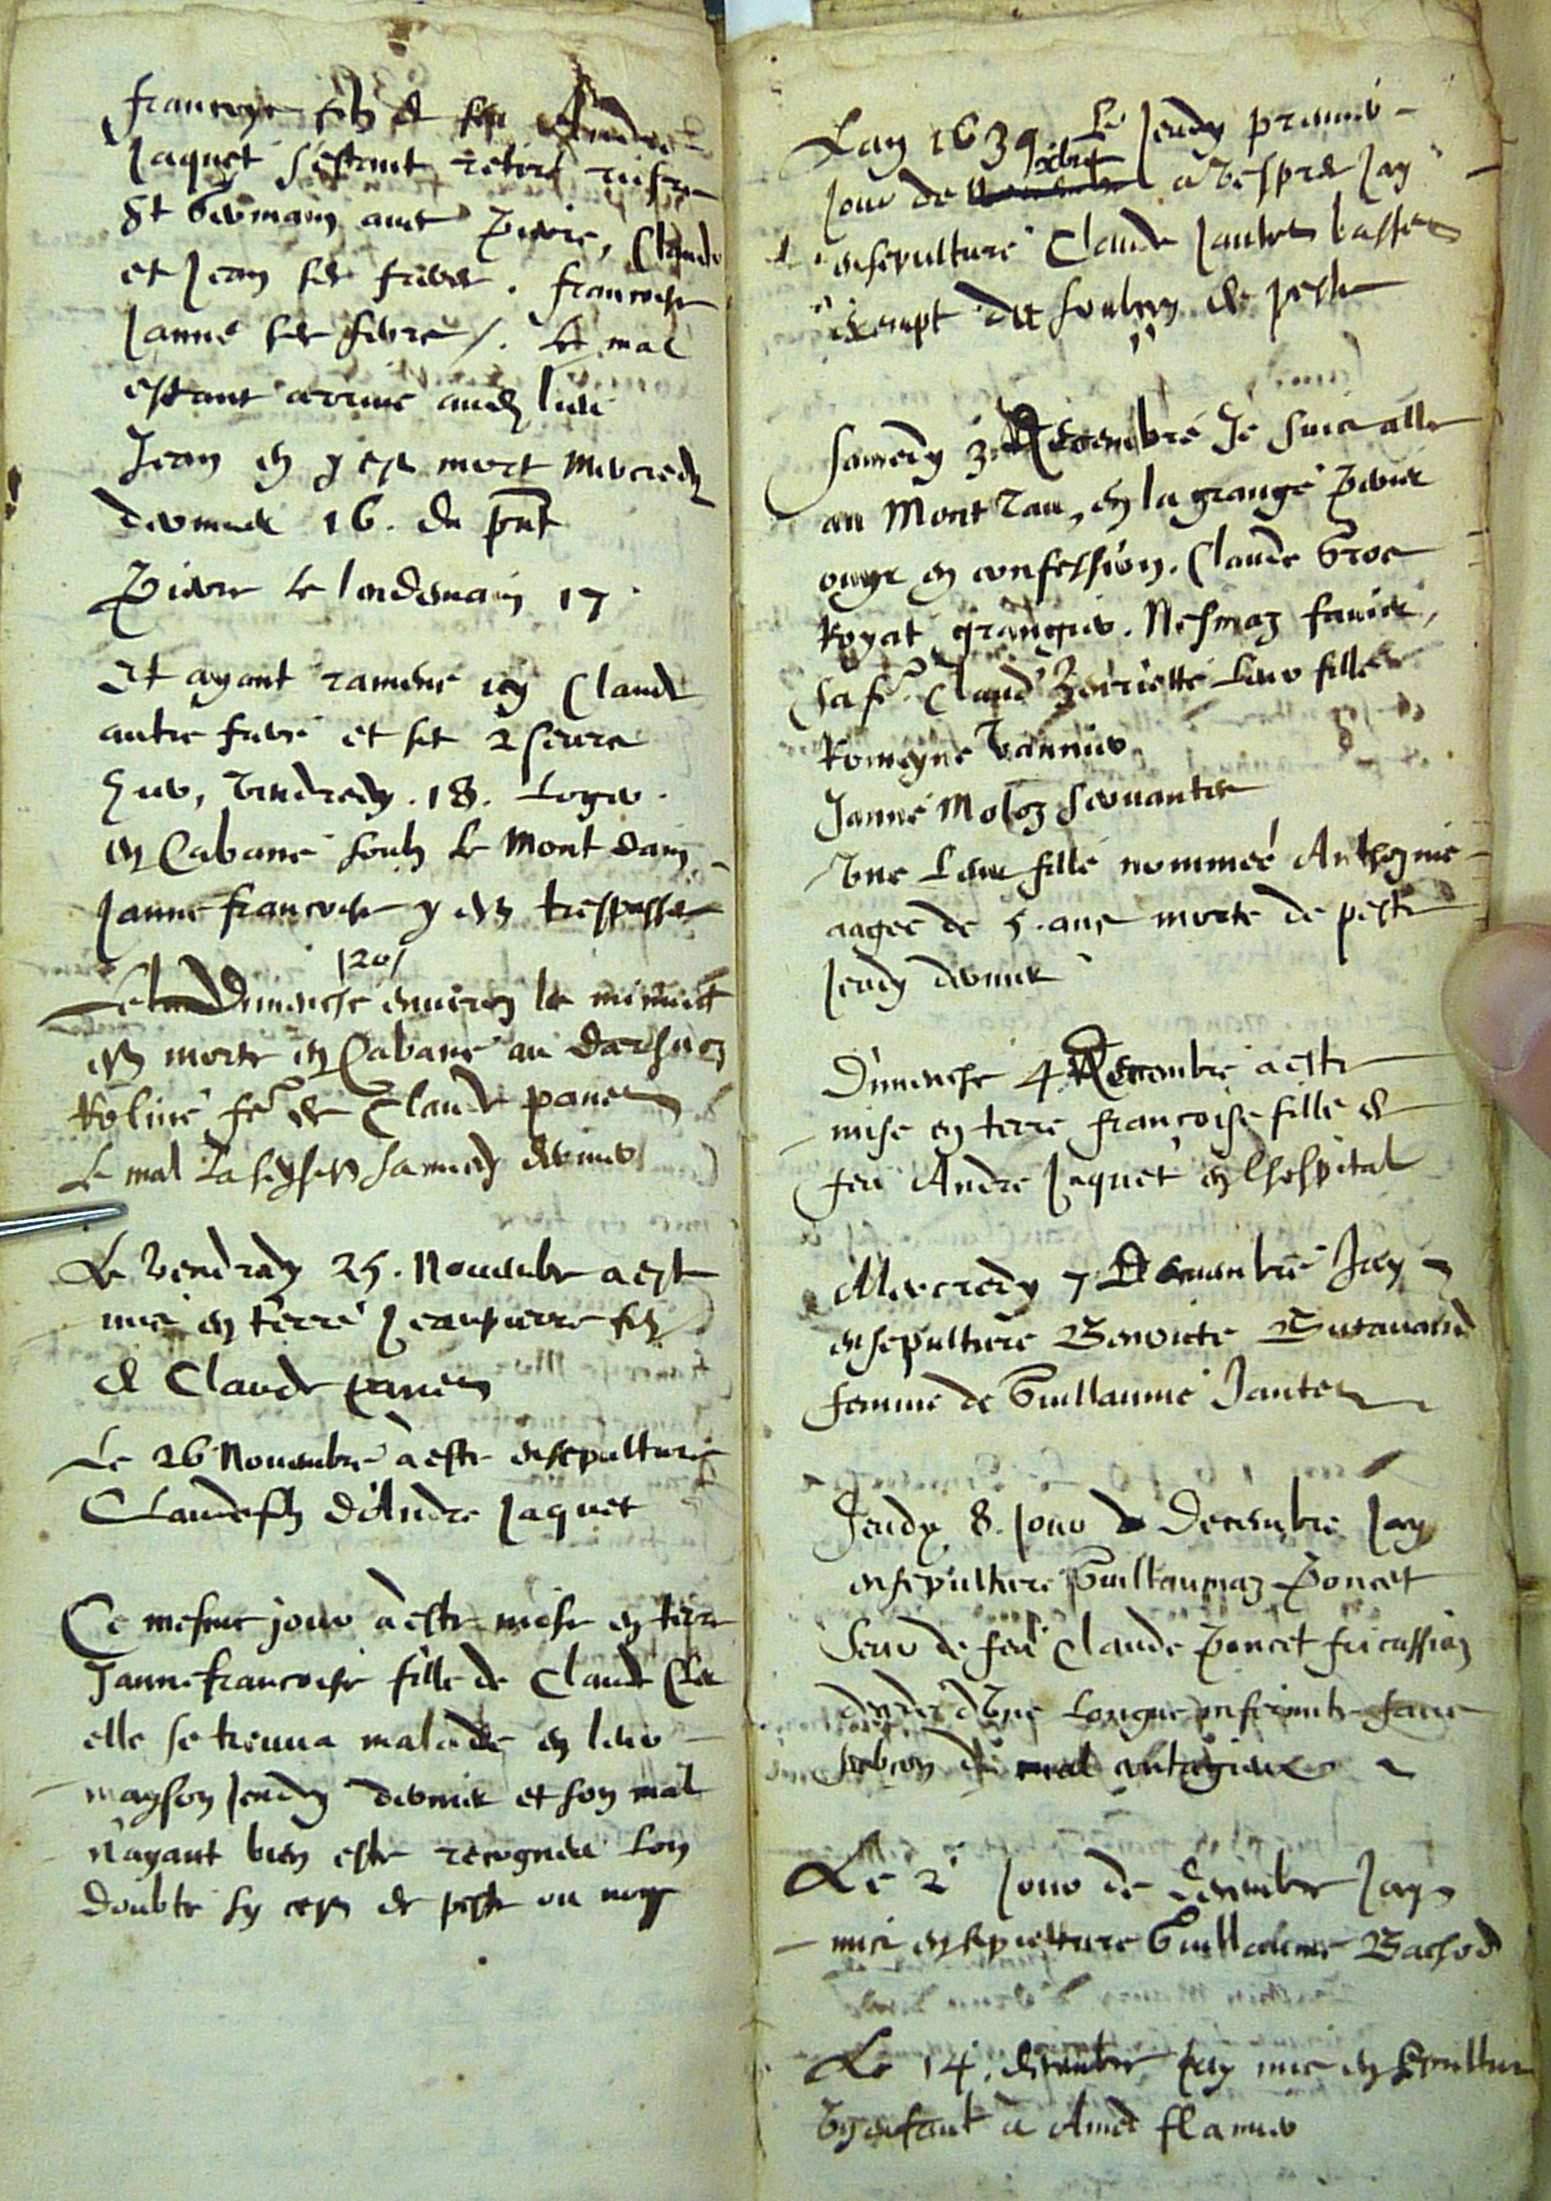 francoys filz de feu Andre
Jaquet sestant retiré riesre
St Germain avec Pierre, Claude
et Jean ses freres. francoise
Janne ses seurs /. Le mal
estant arrivé aud lieu
Jean en y est mort mercredy
dernier 16. du pnt
Pierre le lendemain 17
Et ayant ramené icy Claude
autre frere et ses 2 seurs
hier, vendredy .18. loger
en Cabane soubz le Mont dain
Janne francoise y est trespassee
|20|
Le Dimenche environ la minuict
est morte en Cabane au
fe de Claude panes
Le mal la saysist samedy dernier
Le vendredy 25. Novembre a esté
mis en terre Jeanpierre filz
de Claude panes
Le 26 Novembre a esté ensepulturé
Claude filz d'Andre Jaquet
Ce mesme jour a esté mise en terre
Janne francoise fille de Claude
elle se treuva malade en leur
mayson Jeudy dernier et son mal
n'ayant bien esté recogneu lon
doubte sy cest de peste ou non
Lan 1639 Le Jeudy premier
jour de xbre a vespre jay
ensepulturé Claude Jantes
exempt de soubçon de peste
Samedy 3 Decembre Je suis allé
au Mont en la grange
ouyr en confession. Claude Gros
Royat granger. favier,
sa fe. Claud leur fille
Romayne Vannier
Janne Moloz servante
Une leur fille nommeé Anthoynie
aagee de 5. ans morte de peste
Jeudy dernier
Dimenche 4 Decembre a esté
mise en terre francoise fille de
feu Andre Jaquet en lhospital
Mercredy 7 Decembre Jay
ensepulturé Benoicte
femme de Guillaume Jantes
Jeudy 8. jour de Decembre jay
ensepulturé Guillaumaz Poncet
seur de feu Claude Poncet
d'une longue infirmité sans
soubçon de mal contagieux
Le 2 jour de decembre jay
mis en sepulture Guillaume Bachod
Le 14. decembre jay mis en sepulture
Un enfant a Amed flamier